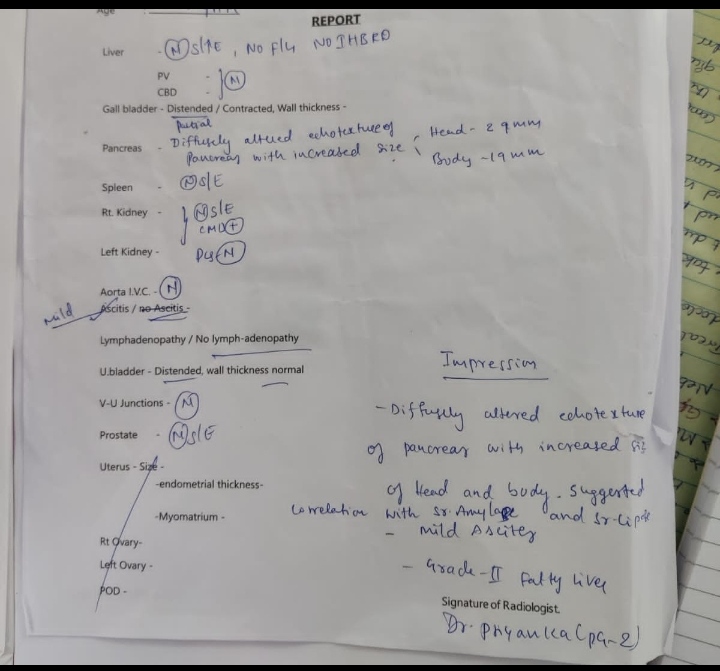 Age
REPORT
Liver - (N) S/↑E, NO F/L NO IHBRD
PV -
CBD - } (N)
Gall bladder - Distended / Contracted, Wall thickness -
Partial
Pancreas - Diffusely altered echotexture of
Pancreas with increased size, Head - 29mm
Body - 19mm
Spleen - (N) S/E
Rt. Kidney - (N) S/E
CMD (+)
Left Kidney - PCS (N)
Aorta I.V.C. - (N)
Mild Ascitis / no Ascitis -
Lymphadenopathy / No lymph-adenopathy
U.bladder - Distended, wall thickness normal
V-U Junctions - (N)
Prostate - (N) S/E
Uterus - Size -
-endometrial thickness-
-Myomatrium -
Rt Ovary-
Left Ovary -
POD -
Impression
- Diffusely altered echotexture
of pancreas with increased siz
of Head and body. Suggested
correlation with Sr. Amylase and Sr. Lipase
- Mild Ascites
- Grade-II Fatty liver
Signature of Radiologist.
Dr. Priyanka (PG-2)